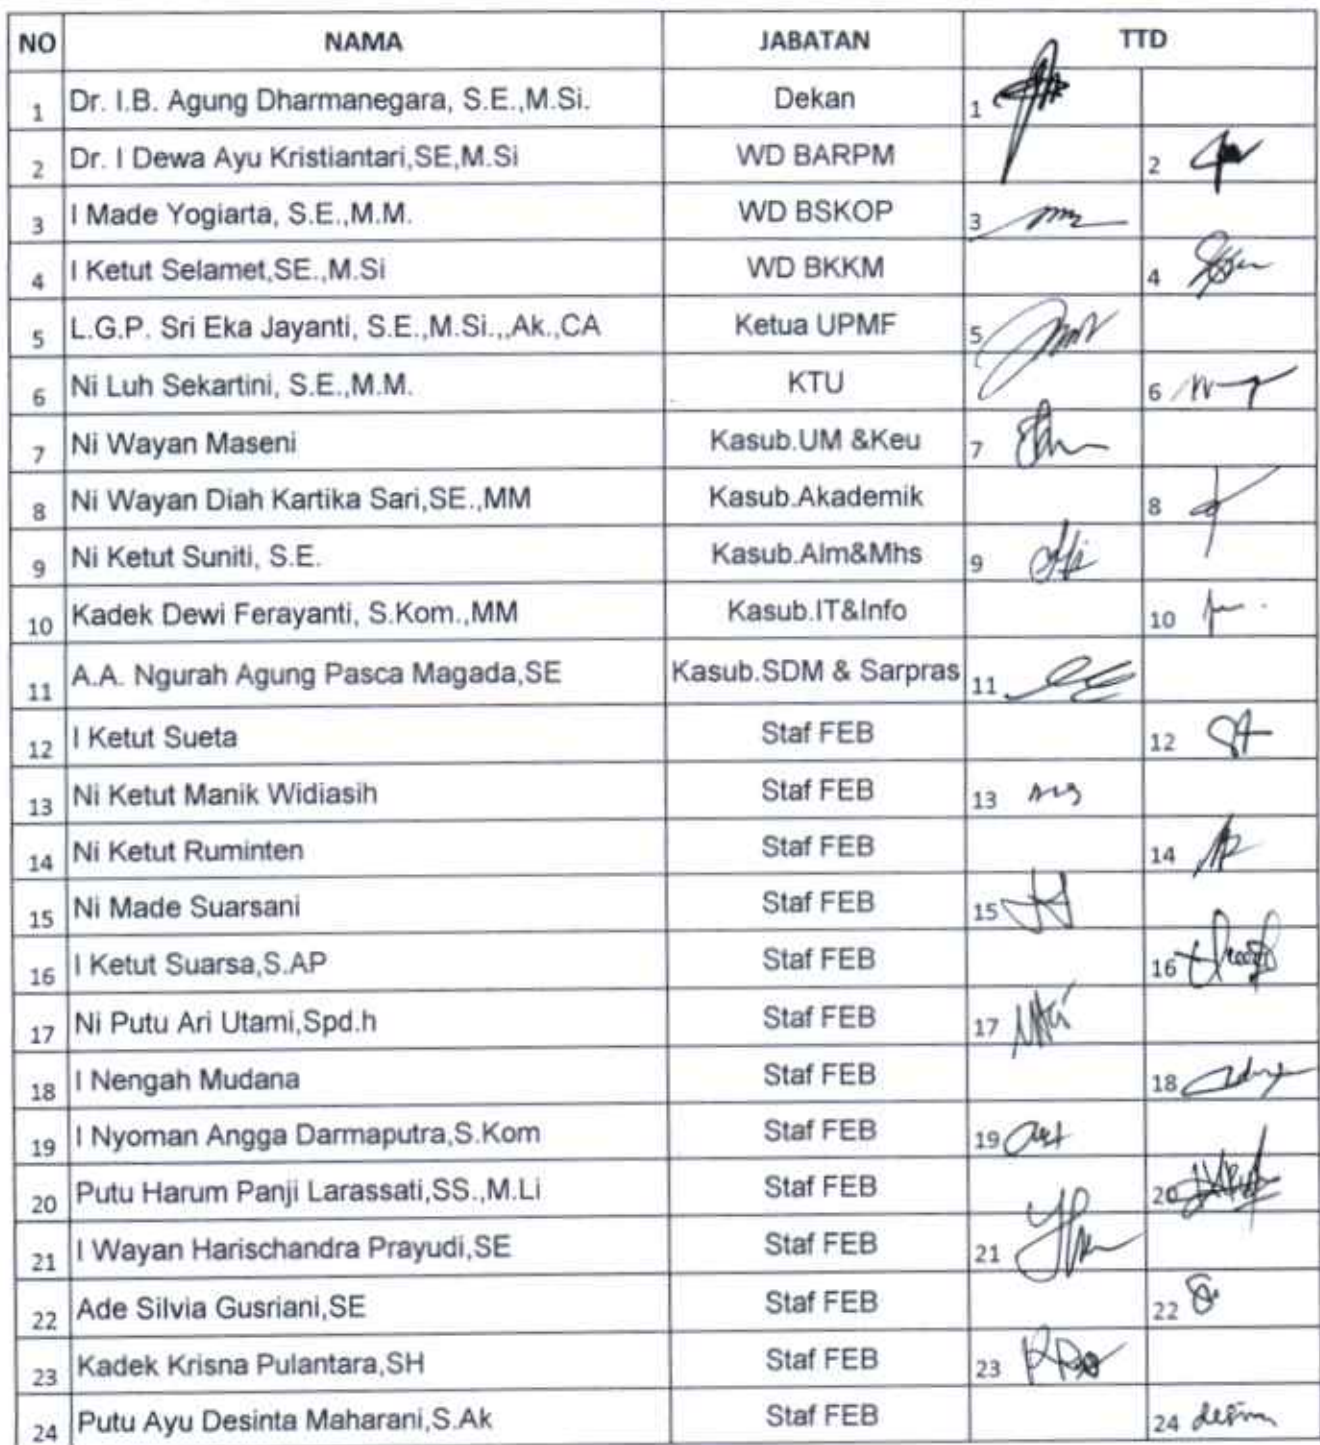 NO NAMA JABATAN TTD
1 Dr. I.B. Agung Dharmanegara, S.E.,M.Si. Dekan 1
2 Dr. I Dewa Ayu Kristiantari,SE,M.Si WD BARPM 2
3 I Made Yogiarta, S.E.,M.M. WD BSKOP 3
4 I Ketut Selamet,SE.,M.Si WD BKKM 4
5 L.G.P. Sri Eka Jayanti, S.E.,M.Si.,,Ak.,CA Ketua UPMF 5
6 Ni Luh Sekartini, S.E.,M.M. KTU 6
7 Ni Wayan Maseni Kasub.UM &Keu 7
8 Ni Wayan Diah Kartika Sari,SE.,MM Kasub.Akademik 8
9 Ni Ketut Suniti, S.E. Kasub.Alm&Mhs 9
10 Kadek Dewi Ferayanti, S.Kom.,MM Kasub.IT&Info 10
11 A.A. Ngurah Agung Pasca Magada,SE Kasub.SDM & Sarpras 11
12 I Ketut Sueta Staf FEB 12
13 Ni Ketut Manik Widiasih Staf FEB 13
14 Ni Ketut Ruminten Staf FEB 14
15 Ni Made Suarsani Staf FEB 15
16 I Ketut Suarsa,S.AP Staf FEB 16
17 Ni Putu Ari Utami,Spd.h Staf FEB 17
18 I Nengah Mudana Staf FEB 18
19 I Nyoman Angga Darmaputra,S.Kom Staf FEB 19
20 Putu Harum Panji Larassati,SS.,M.Li Staf FEB 20
21 I Wayan Harischandra Prayudi,SE Staf FEB 21
22 Ade Silvia Gusriani,SE Staf FEB 22
23 Kadek Krisna Pulantara,SH Staf FEB 23
24 Putu Ayu Desinta Maharani,S.Ak Staf FEB 24